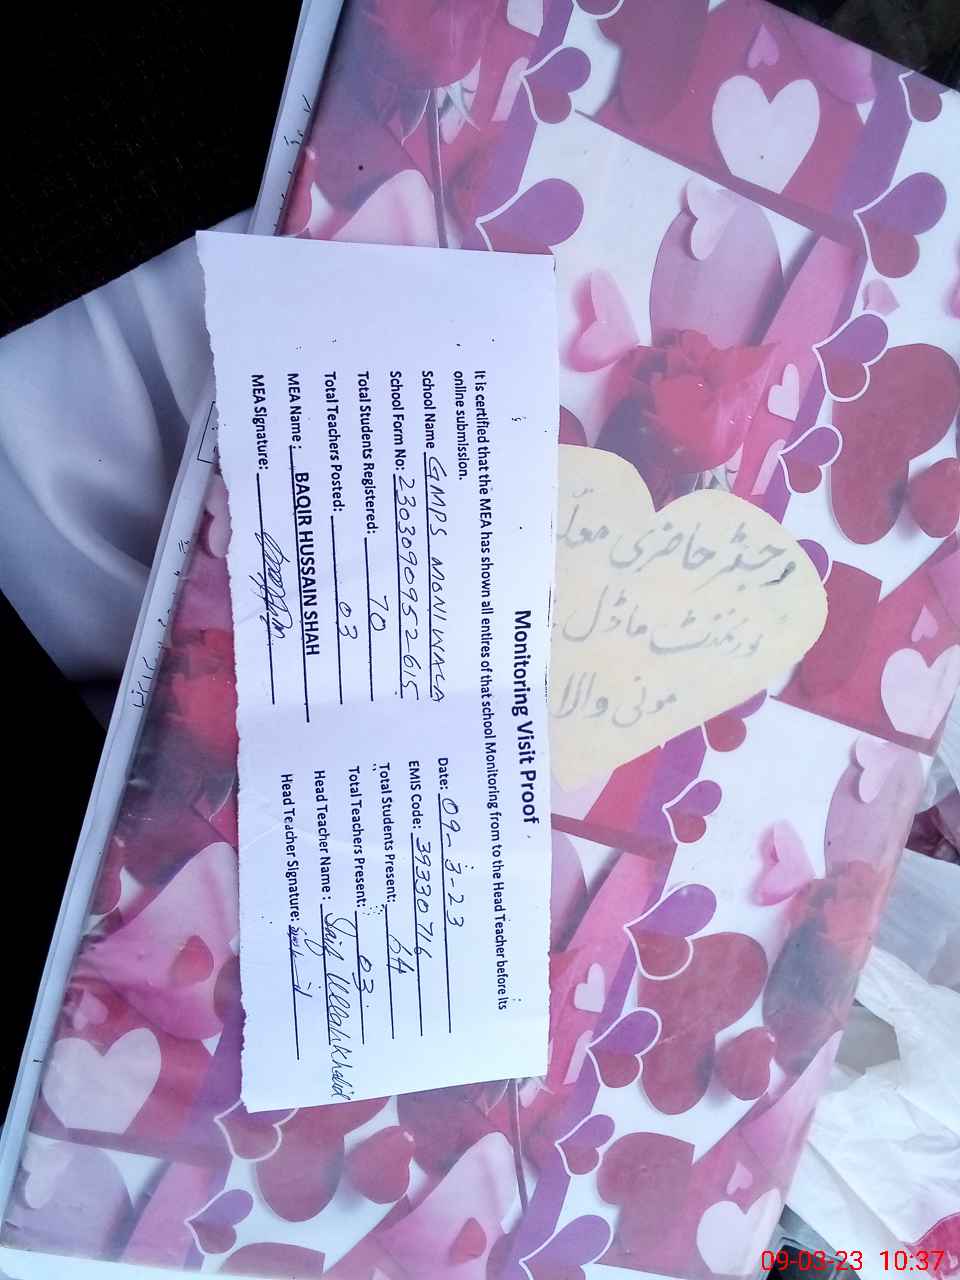 Monitoring Visit Proof
It is certified that the MEA has shown all entires of that school Monitoring from to the Head Teacher before its
online submission.
School Name GMPS MONIWALA Date: 09-3-23
School Form No: 230309095 2615 EMIS Code: 39330716
Total Students Registered: 70 Total Students Present: 64
Total Teachers Posted: 03 Total Teachers Present: 03
MEA Name: BAQIR HUSSAIN SHAH Head Teacher Name: Saif Ullah Khalid
MEA Signature: Head Teacher Signature:
رجسٹر حاضری
گورنمنٹ ماڈل
مونی والا
09-03-23 10:37